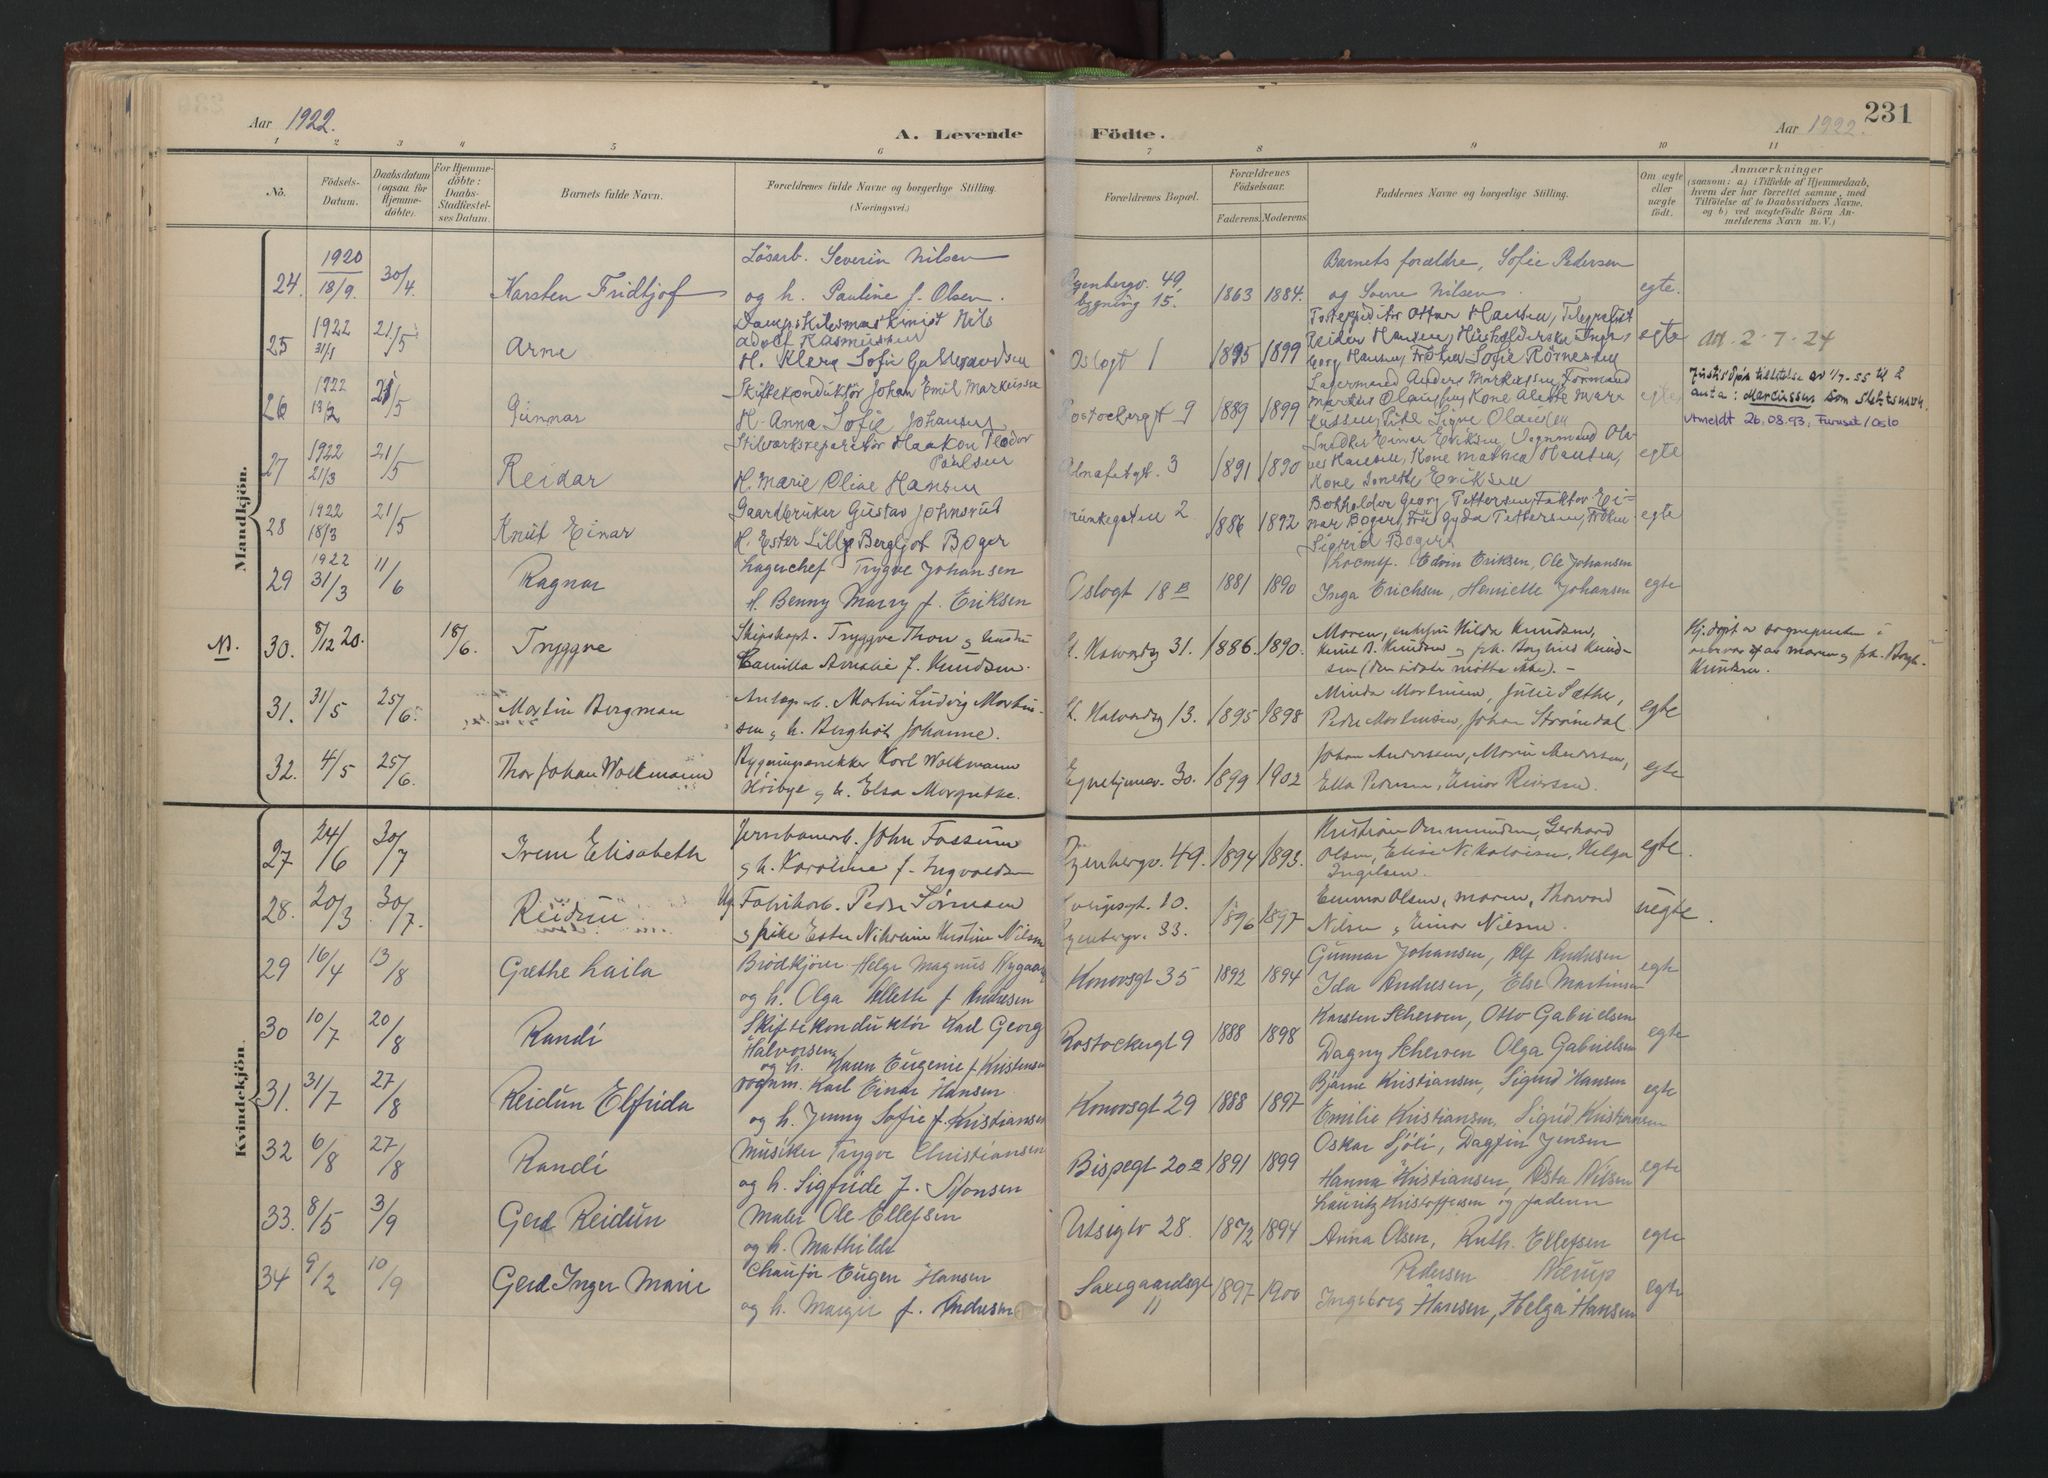 Aar 1922.
A. Levende
Födte.
231
Aar 1922.
1 2 3 4 5 6 7 8 9 10 11
No.
Födsels-Datum.
Daabsdatum (ogsaa for Hjemmedöbte).
For Hjemmedöbte: Daabs-Stadfæstelses Datum.
Barnets fulde Navn.
Forældrenes fulde Navne og borgerlige Stilling. (Næringsvei.)
Forældrenes Bopæl.
Forældrenes Födselsaar.
Faderens. Moderens.
Faddernes Navne og borgerlige Stilling.
Om ægte eller uægte födt.
Anmærkninger
(saasom: a) i Tilfælde af Hjemmedaab, hvem der har forrettet samme, med Tilföielse af to Daabsvidners Navne, og b) ved uægtefödte Börn Anmelderens Navn m. V.)
Mandkjön.
24. 1920 18/9. 30/4. Karsten Fridtjof
Lösarb. Severin Nilsen
og h. Pauline f. Olsen.
49, bygning 15. 1863 1884.
Barnets forældre, Sofie Pedersen
og Sverre Nilsen. egte.
25 1922 31/1 21/5 Arne
Adolf Rasmussen
H. Klara Sofie
Oslogt 1 1895 1899
Ottar Hansen, Telegrafist
Reidar Hansen, Husholderske Ingeborg Hansen, Fröken Sofie egte
Utt 2-7-24
26 1922 13/2 21/5 Gunnar
Skiftekonduktör Johan Emil
H. Anna Sofie Johansen
Rostockergt 9 1889 1899
Lagermand Anders Markussen, Formand
Markus Olaussen, Kone Aleste Markussen, Pike Signe Olaussen egte
Justisdep's tillatelse av 1/7-55 til å
anta: Marcussen som slektsnavn.
Utmeldt 26.08.93, Furuset/Oslo
27 1922 21/3 21/5 Reidar
Haakon Teodor
Paulsen
H. Marie Oline Hansen
3 1891 1890
Snedker Einar Eriksen, Vognmand
Hansen, Kone Hansen,
Kone Eriksen egte
28 1922 18/3 21/5 Knut Einar
Gaardbruker Gustav Johnsrud
H. Ester Lilly Bergljot Boger
Munkegaten 2 1886 1892
Bokholder Georg Pettersen, Faktor Einar Boger, Fru Gyda Pettersen, Fröken
Sigrid Boger egte
29 1922 31/3 11/6 Ragnar
Lagerchef Trygve Johansen
H. Benny Marry f. Eriksen
Oslogt 18 B 1881 1890
Edvin Eriksen, Ole Johansen
Inga Erichsen, Henriette Johansen egte
NB. 30. 8/12 20. 18/6. Tryggve
Skipskapt. Tryggve Thon og hustru
Camilla Amalie f. Knudsen.
St. Halvardsg 31. 1886. 1890.
Moren, Hilda Knudsen,
Knut B. Knudsen og frk. Borghild Knudsen (den sidste møtte ikke). -
Hj.døpt av sogneprest
moren og frk. Borgh.
Knudsen.
31. 31/5 25/6. Martin Bergman
Martin Ludvig Martinsen og h. Bergliot Johanne.
St. Halvardsg 13. 1895 1898
Minda Martinsen, Julie Sæther,
Peder Martinsen, Johan Strømdal egte
32. 4/5 25/6. Thor Johan Wolkmann
Bygningssnekker Karl Wolkmann
Höibye og h. Elsa Margrethe.
Egnehjemsv. 30. 1899 1902
Johan Andersen, Marie Andersen,
Ella Pedersen, Einar egte
Kvindekjön.
27 24/6 30/7 Irene Elisabeth
Jernbanearb. John Fossum
og h. Karoline f. Ingvaldsen
Ryenbergv. 49. 1894 1893.
Kristian Ommundsen, Gerhard
Olsen, Elise Nikolaisen, Helga
Ingelsen. egte.
28. 20/3 30/7. Reidun
Ug. Fabrikarb. Peder Sörensen
og pike Ester Nikoline Kristine Nilsen
Sverigesgt. 10.
Ryenbergv. 33. 1896 1897
Emma Olsen, moren, Thorvald
Nilsen og Einar Nilsen. uegte.
29 16/4 13/8 Grethe Laila
Brödkjörer Helge Magnus Nygaard
og h. Olga Alette f Andresen
Konowsgt 35 1892 1894
Gunnar Johansen, Alf Andresen
Ida Andresen, Else Martinsen egte
30 10/7 20/8 Randi
Skiftekonduktör Karl Georg
Halvorsen
og h. Karen Eugenie f Kristensen
Rostockergt 9 1888 1898
Karsten Scherven, Otto Gabrielsen
Dagny Scherven Olga Gabrielsen egte
31. 31/7 27/8 Reidun Elfrida
vognm. Karl Einar Hansen
og h. Jenny Sofie f. Kristiansen
Konovsgt 29 1888 1897
Bjarne Kristiansen, Sigurd Hansen
Emilie Kristiansen, Sigrid Kristiansen egte
32 6/8 27/8 Randi
Musiker Trygve Christiansen
og h. Sigfride f. Monsen
Bispegt 20 B 1891 1899
Oskar Sjöli, Dagfin Jensen
Hanna Kristiansen, Asta Nilsen egte
33. 8/5 3/9 Gerd Reidun
Maler Ole Ellefsen
og h. Mathilde
Utsigtv 28. 1872 1894
Lauritz Kristoffersen og faderen
Anna Olsen, Ruth Ellefsen egte
34 9/2 10/9 Gerd Inger Marie
Chaufför Eugen Hansen
og h. Margit f. Andresen
Saxegaardsgt
11 1897 1900
Pedersen
Ingeborg Hansen, Helga Hansen egte